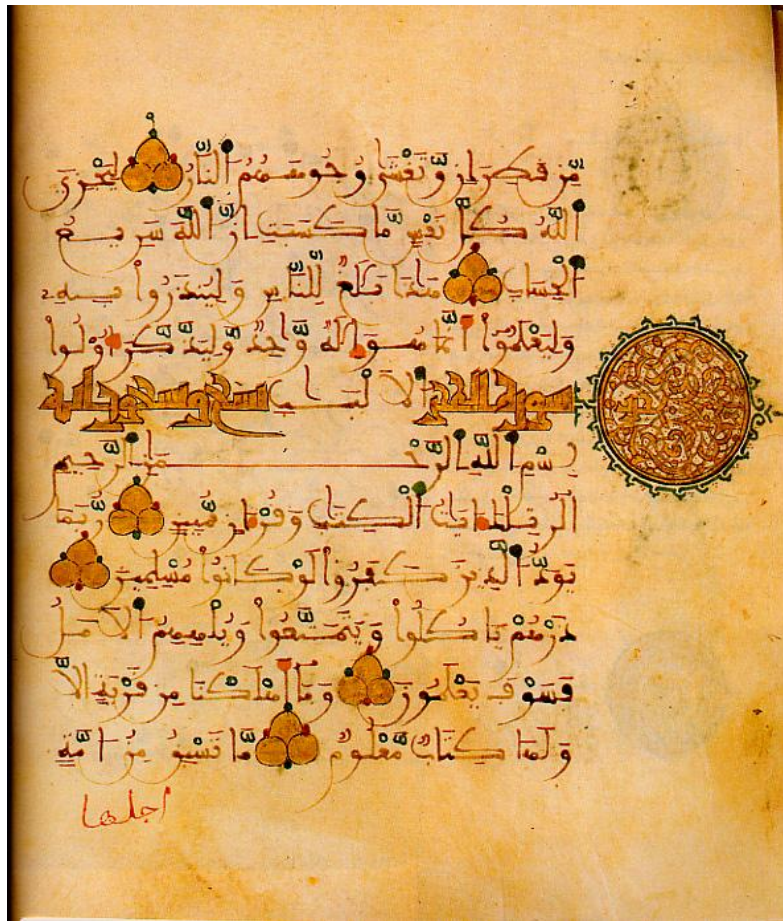 مِّن قَطِرَانٍ وَّتَغْشَىٰ وُجُوهَهُمُ النَّارُ لِيَجْزِيَ
اللَّهُ كُلَّ نَفْسٍ مَّا كَسَبَتِ انَّ اللَّهَ سَرِيعُ
الْحِسَابِ هَٰذَا بَلَٰغٌ لِّلنَّاسِ وَلِيُنذَرُوا بِهِ
وَلِيَعْلَمُوا أَنَّمَا هُوَ إِلَٰهٌ وَّاحِدٌ وَّلِيَذَّكَّرَ أُوْلُوا
سورة الحجر الالْبَٰبِ تسع وتسعون اية
بِسْمِ اللَّهِ الرَّحْمَٰنِ الرَّحِيمِ
الٓر تِلْكَ ءَايَٰتُ الْكِتَٰبِ وَقُرْءَانٍ مُّبِينٍ رُّبَمَا
يَوَدُّ الَّذِينَ كَفَرُوا لَوْ كَانُوا مُسْلِمِينَ
ذَرْهُمْ يَاكُلُوا وَيَتَمَتَّعُوا وَيُلْهِهِمُ الامَلُ
فَسَوْفَ يَعْلَمُونَ وَمَا أَهْلَكْنَا مِن قَرْيَةٍ الَّا
وَلَهَا كِتَابٌ مَّعْلُومٌ مَّا تَسْبِقُ مِنُ امَّةٍ
اجلها